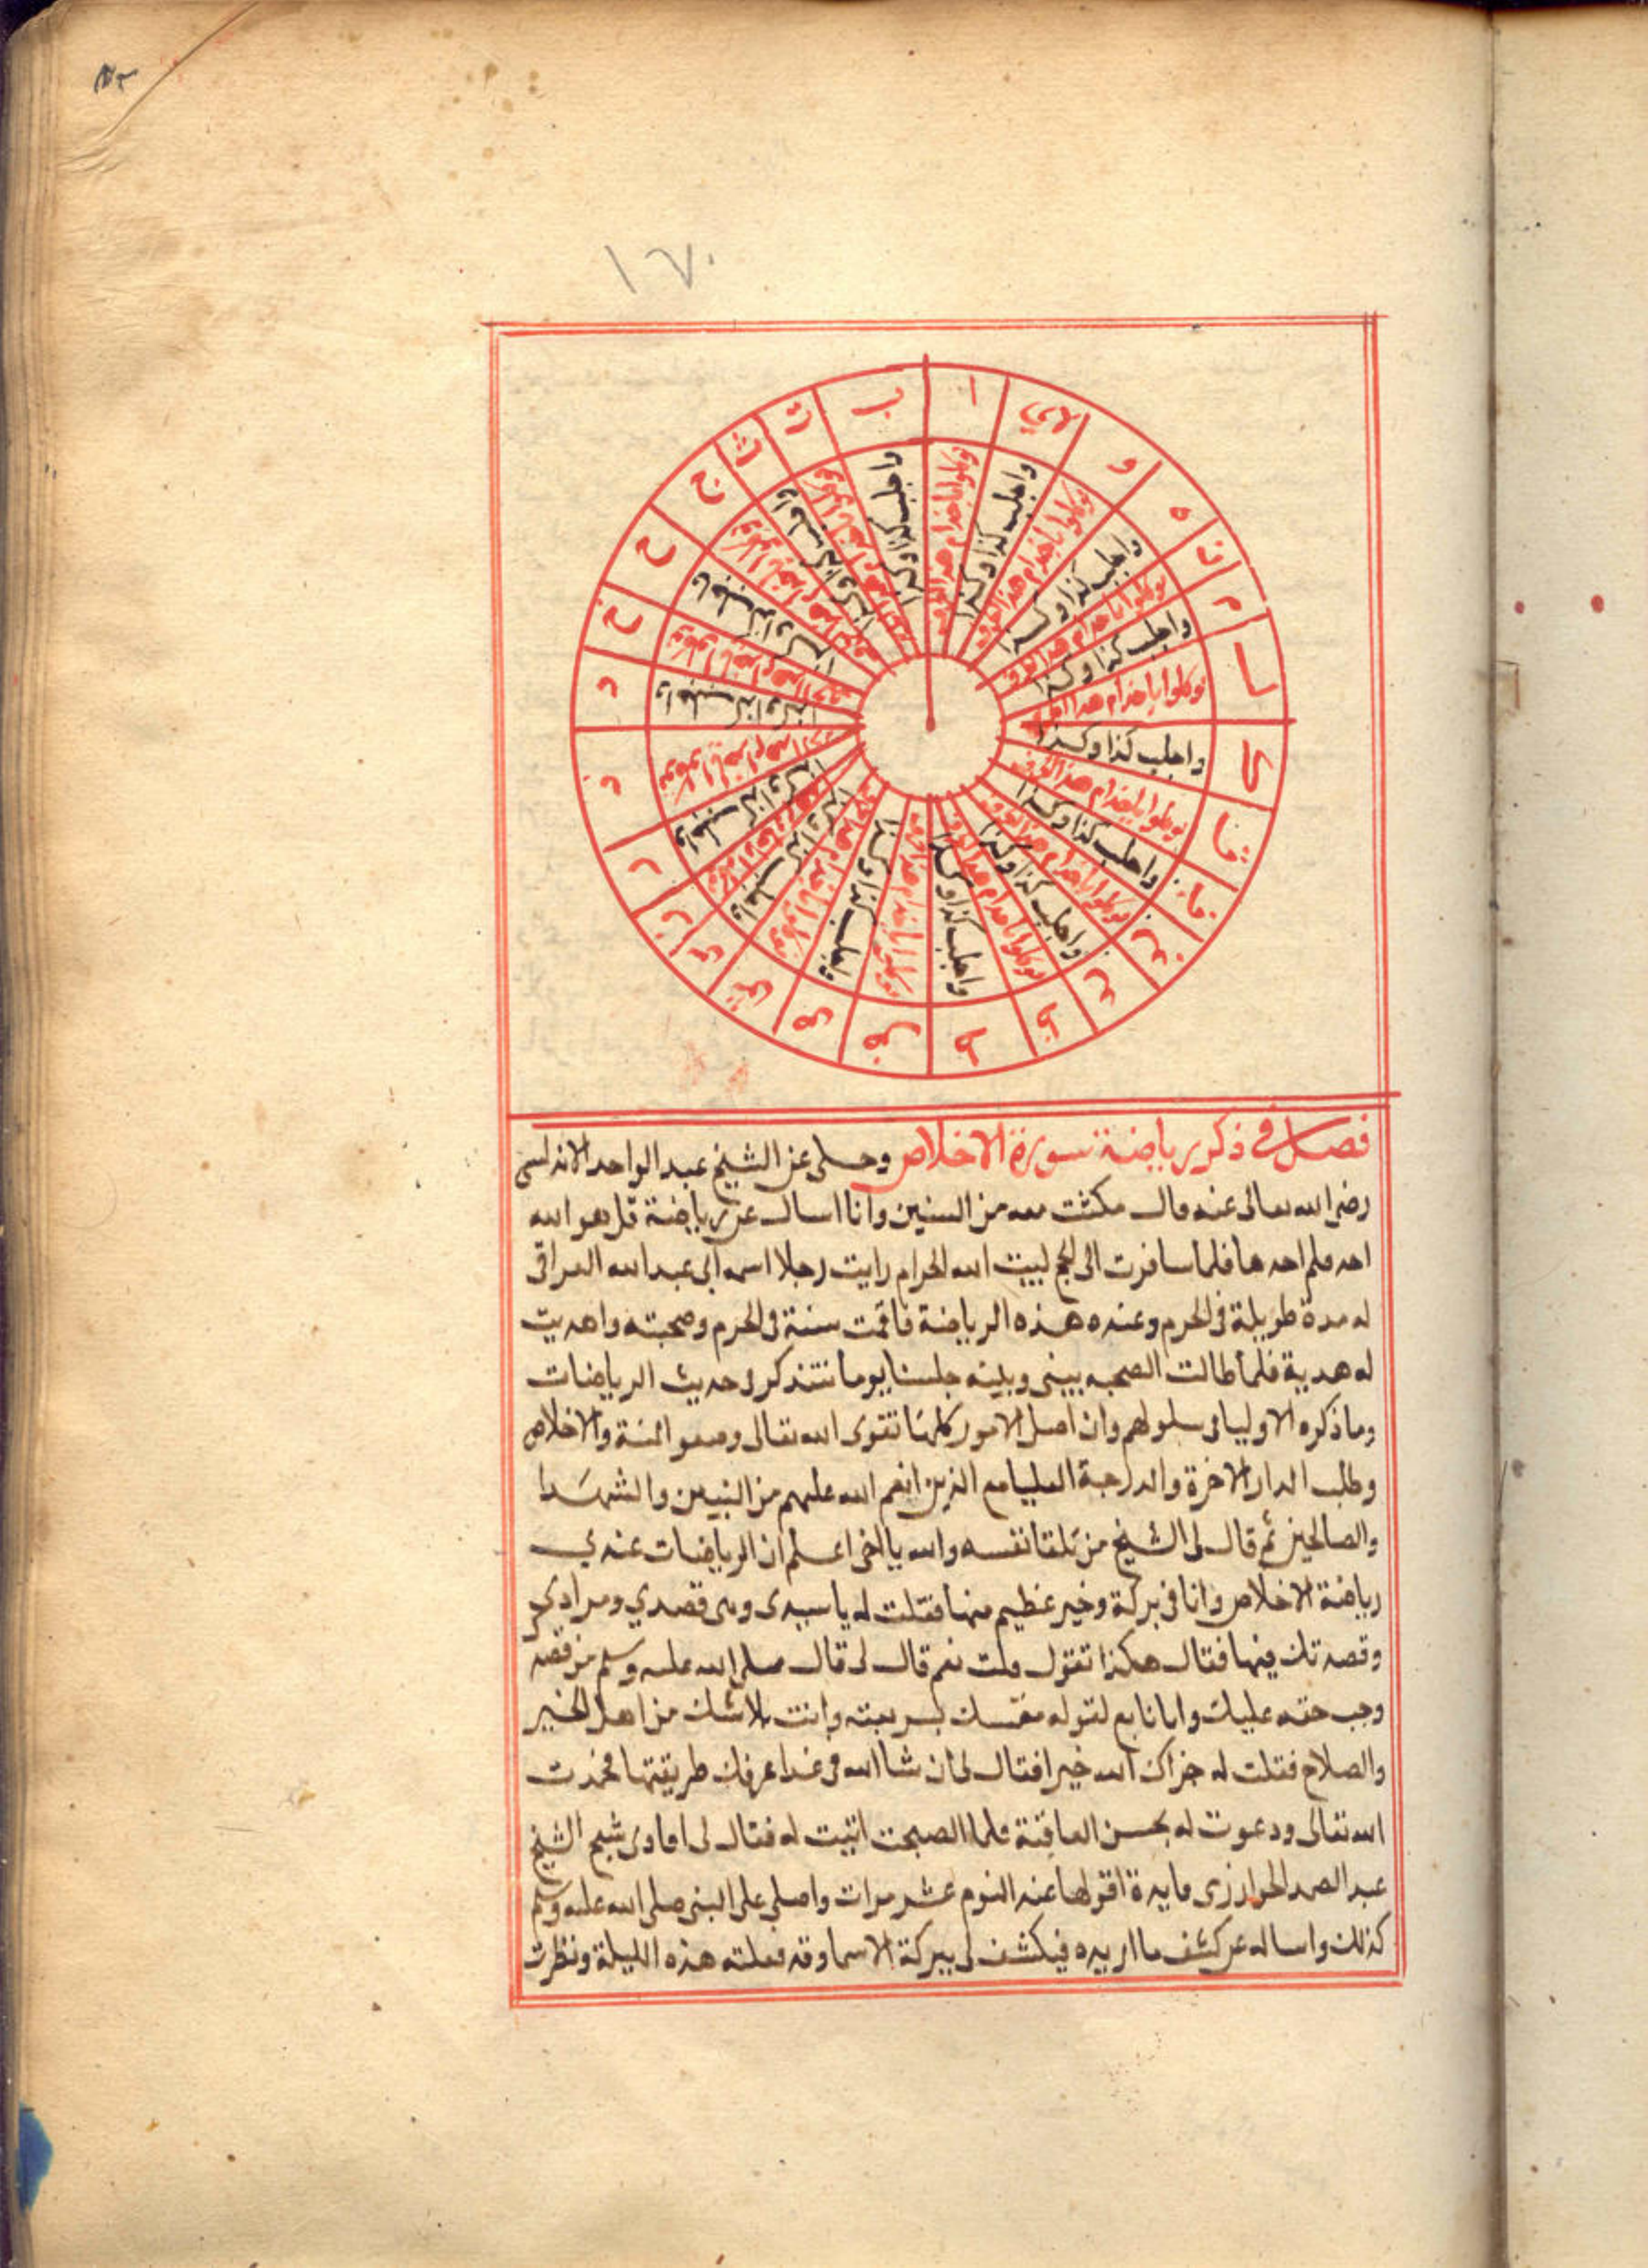 ١٧٠
ا
ب
ت
ث
ج
ح
خ
د
ذ
ر
ز
س
ش
ص
ض
ط
ظ
ع
غ
ف
ق
ك
ل
م
ن
ه
و
لاي
توكلوا يا خدام هذا الحرف
واجلب كذا وكذا
فصل في ذكر رياضة سورة الاخلاص وحكى عن الشيخ عبد الواحد الاندلسى
رضى الله تعالى عنه قال مكثت معه من السنين وانا اسال عن رياضة قل هو الله
احد فلم احدها فلما سافرت الى الحج لبيت الله الحرام رايت رجلا اسمه ابى عبد الله العراقى
له مدة طويلة فى الحرم وعنده هذه الرياضة فاقمت سنة فى الحرم وصحبته واهديت
له هدية فلما طالت الصحبه بينى وبينه جلسنا يوما نتذكر فى حديث الرياضات
وما ذكره الاوليا فى سلولهم وان اصل الامور كلها تقوى الله تعالى وصفو النية والاخلاص
وطلب الدار الاخرة والدرجة العليا مع الذين انعم الله عليهم من النبيين والشهدا
والصالحين ثم قال لى الشيخ من تلقا نفسه والله يا اخى اعلم ان الرياضات عندي
رياضة الاخلاص وانا فى بركة وخير عظيم منها فقلت له يا سيدى وهى قصدي ومرادي
وقصدتك فيها فقال هكذا تقول قلت نعم قال لى قال صلى الله عليه وسلم من قصد
وجب حقه عليك وانا تابع لقوله بشريعته وانت بلا شك من اهل الخير
والصلاح فقلت له جزاك الله خيرا فقال لى ان شا الله فى غدا اعرفك طريقتها فحمدت
الله تعالى ودعوت له بحسن العاقبة فلما اصبحت اتيت له فقال لى شيخ الشيخ
عبد الصمد الخوارزى فايدة اقولها عند النوم عشر مرات واصلى على النبى صلى الله عليه وسلم
كذلك واساله عن كشف ما اريده فيكشف لى ببركة الاسما وقد فعلته هذه الليلة ونظرت